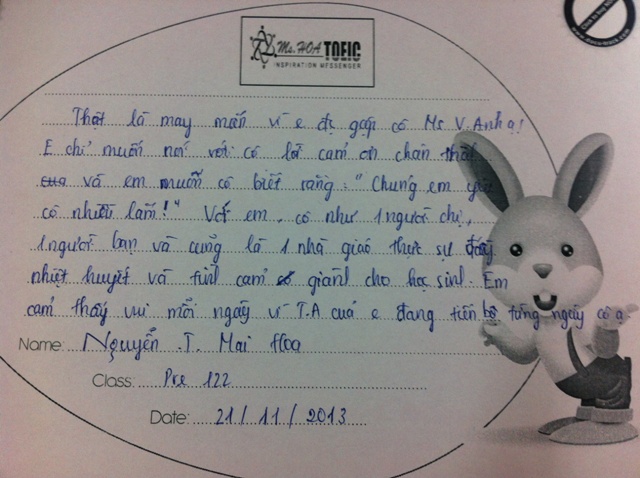 Ms. HOA TOEIC
INSPIRATION MESSENGER
Thật là may mắn vì e đc gặp cô Ms V.Anh ạ!
E chỉ muốn nói với cô lời cảm ơn chân thật
và em muốn cô biết rằng: "Chúng em yêu
cô nhiều lắm!" Với em, cô như 1 người chị,
1 người bạn và cũng là 1 nhà giáo thực sự đầy
nhiệt huyết và tình cảm giành cho học sinh. Em
cảm thấy vui mỗi ngày vì T.A của e đang tiến bộ từng ngày cô ạ.
Name: Nguyễn .T. Mai Hoa
Class: Pre 122
Date: 21 / 11 / 2013